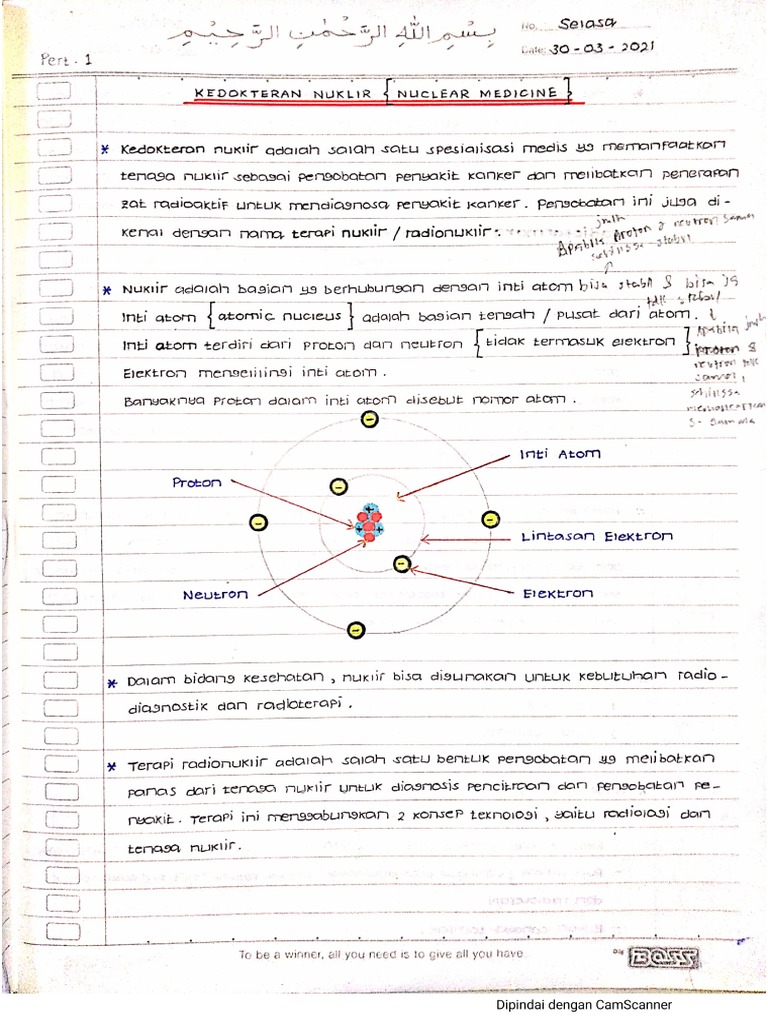 بِسْمِ اللهِ الرَّحْمٰنِ الرَّحِيْمِ
No. Selasa
Date: 30-03-2021
Pert. 1
KEDOKTERAN NUKLIR {NUCLEAR MEDICINE}
* Kedokteran nuklir adalah salah satu spesialisasi medis yg memanfaatkan
tenaga nuklir sebagai pengobatan penyakit kanker dan melibatkan penerapan
zat radioaktif untuk mendiagnosa penyakit kanker. Pengobatan ini juga di-
kenal dengan nama terapi nuklir / radionuklir.
jmlh
Apabila Proton & neutron sama
sehingga stabil
* Nuklir adalah bagian yg berhubungan dengan inti atom bisa stabil & bisa jg
tdk stabil
Inti atom {atomic nucleus} adalah bagian tengah / pusat dari atom.
Inti atom terdiri dari proton dan neutron {tidak termasuk elektron}
Apabila jmlh
proton &
neutron tdk
sama,
sehingga
Elektron mengelilingi inti atom.
Banyaknya proton dalam inti atom disebut nomor atom.
Inti Atom
Proton
Lintasan Elektron
Neutron
Elektron
* Dalam bidang kesehatan, nuklir bisa digunakan untuk kebutuhan radio-
diagnostik dan radioterapi.
* Terapi radionuklir adalah salah satu bentuk pengobatan yg melibatkan
panas dari tenaga nuklir untuk diagnosis pencitraan dan pengobatan pe-
nyakit. Terapi ini menggabungkan 2 konsep teknologi, yaitu radiologi dan
tenaga nuklir.
To be a winner, all you need is to give all you have
BOSS
Dipindai dengan CamScanner